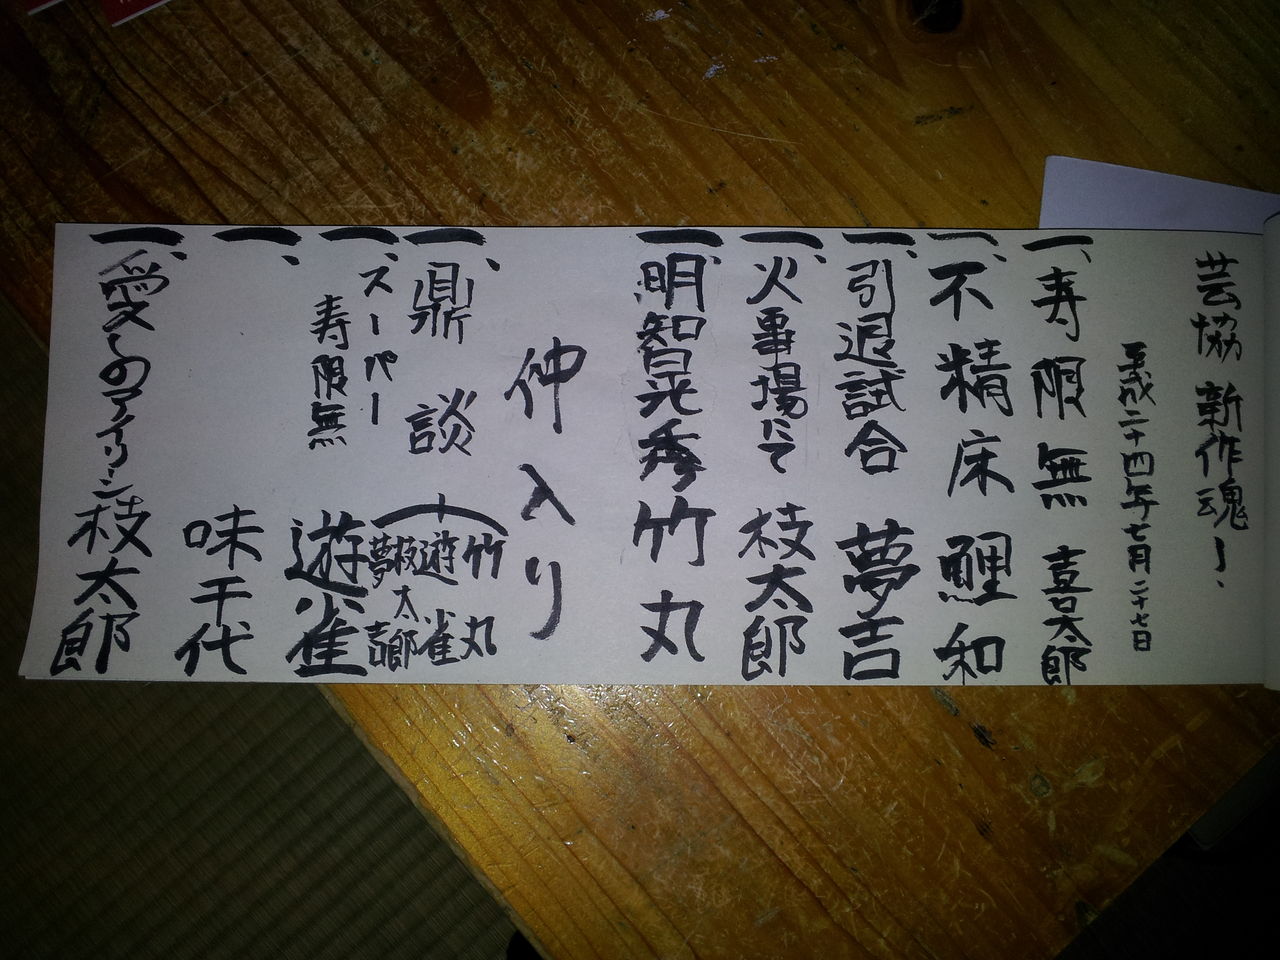 芸協 新作魂!
平成二十四年七月二十七日
一、寿限無 喜太郎
一、不精床 鯉和
一、引退試合 夢吉
一、火事場にて 枝太郎
一、明智光秀 竹丸
仲入り
一、鼎談 (竹丸 遊雀 枝太郎 夢吉)
一、スーパー寿限無 遊雀
一、 味千代
一、愛しのアイリーン 枝太郎